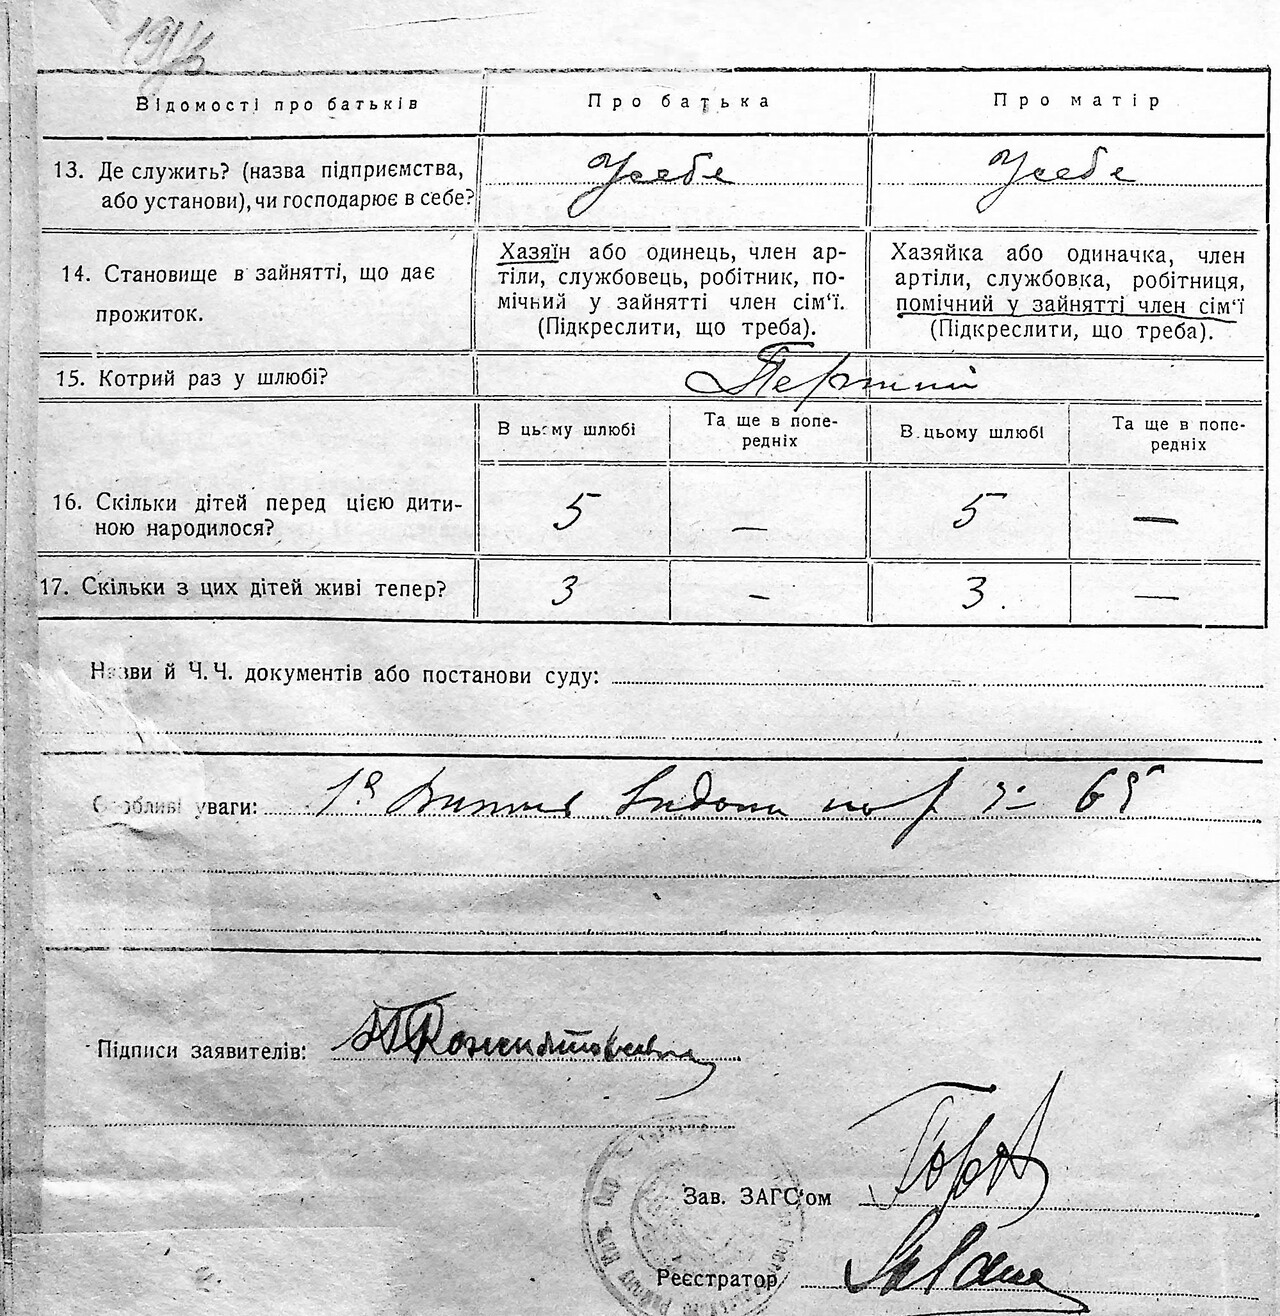 Відомості про батьків
Про батька
Про матір
13. Де служить? (назва підприємства,
або установи), чи господарює в себе?
У себе
У себе
14. Становище в зайнятті, що дає
прожиток.
Хазяїн або одинець, член ар-
тіли, службовець, робітник, по-
мічний у зайнятті член сім‘ї.
(Підкреслити, що треба).
Хазяйка або одиначка, член
артіли, службовка, робітниця,
помічний у зайнятті член сім‘ї
(Підкреслити, що треба).
15. Котрий раз у шлюбі?
Перший
В цьому шлюбі
Та ще в попе-
редніх
В цьому шлюбі
Та ще в попе-
редніх
16. Скільки дітей перед цією дити-
ною народилося?
5
—
5
—
17. Скільки з цих дітей живі тепер?
3
-
3.
—
Назви й Ч. Ч. документів або постанови суду:
Особливі уваги:
65
Підписи заявителів:
Зав. ЗАГС‘ом
Реєстратор